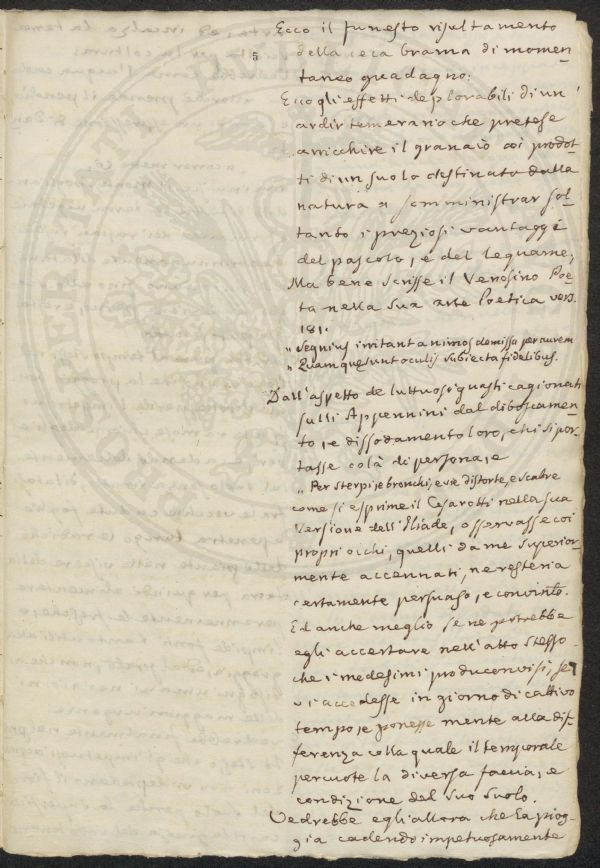 5
Ecco il funesto risultamento
della ceca brama di momen-
taneo guadagno:
Ecco gli effetti deplorabili di un
ardir temerario che pretese
arricchire il granaio coi prodot-
ti di un suolo destinato dalla
natura a somministrar sol-
tando i preziosi vantaggi
del pascolo, e del legname;
Ma bene scrisse il Venosino Poe-
ta nella sua arte Poetica vers.
181.
" Segnius irritant animos demissa per aurem
" Quam que sunt oculis subiecta fidelibus.
Dall'aspetto de luttuosi guasti cagionati
sulli Appennini dal diboscamen-
to, e dissodamento loro, chi si por-
tasse colà di persona, e
" Per sterpi, e bronchi, e vie distorte, e scabre
come si esprime il Cesarotti nella sua
Versione dell'Iliade, osservasse coi
propri occhi, quelli da me superior-
mente accennati, ne resteria
certamente persuaso, e convinto.
Ed anche meglio se ne potrebbe
egli accertare nell'atto stesso
che i medesimi produconvisi, se
vi accedesse in giorno di cattivo
tempo, e ponesse mente alla dif-
ferenza colla quale il temporale
percuote la diversa faccia, e
condizione del suo suolo.
Vedrebbe egli allora che la piog-
gia cadendo impetuosamente